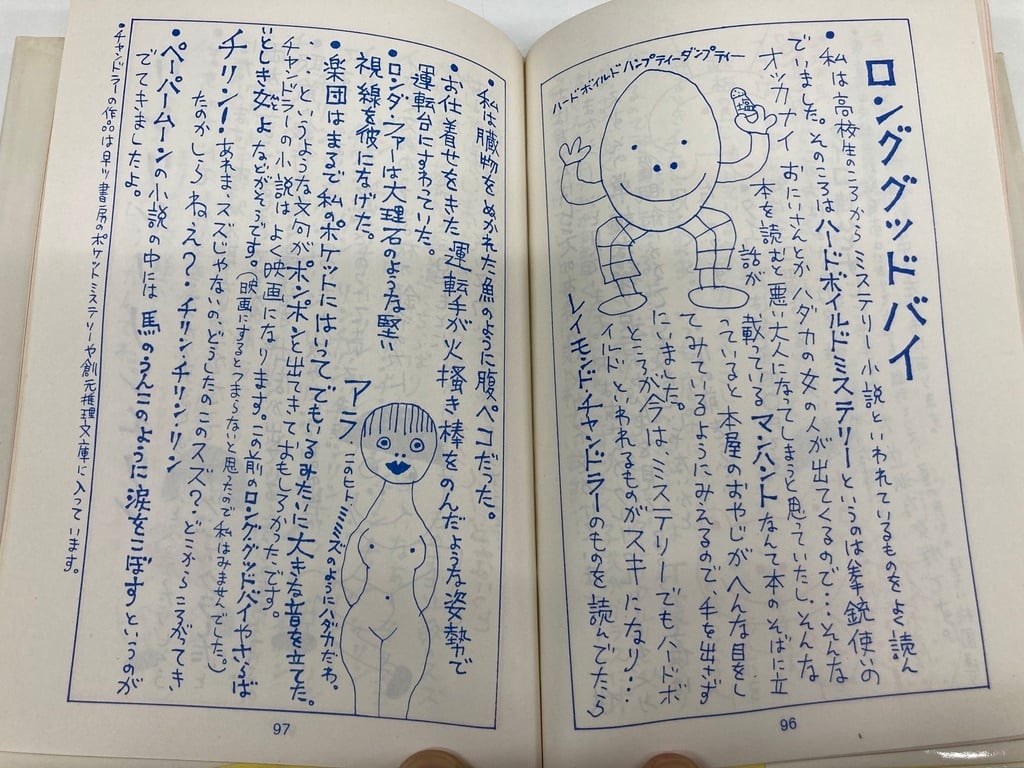 ロンググッドバイ
・私は高校生のころからミステリー小説といわれているものをよく読ん
でいました。そのころはハードボイルドミステリーというのは拳銃使いの
オッカナイおにいさんとかハダカの女の人が出てくるので…そんな
本を読むと悪い大人になってしまうと思っていたしそんな
話が載っているマンハントなんて本のそばに立
っていると本屋のおやじがへんな目をし
てみているようにみえるので、手を出さず
にいました。
ところが今は、ミステリーでもハードボ
イルドといわれるものがスキになり…
レイモンドチャンドラーのものを読んでたら
ハードボイルドハンプティーダンプティー
塩
96
・私は臓物をぬかれた魚のように腹ペコだった。
・お仕着せをきた運転手が火掻き棒をのんだような姿勢で
運転台にすわっていた。
・ロンダ・ファーは大理石のような堅い
視線を彼になげた。
・楽団はまるで私のポケットにはいってでもいるみたいに大きな音を立てた。
…というような文句がポンポンと出てきておもしろかったです。
チャンドラーの小説はよく映画になります。この前のロンググッドバイやさらば
いとしき女よなどがそうです。(映画にするとつまらないと思ったので私はみませんでした。)
チリンー・あれま、スズじゃないの、どうしたのこのスズ?・どこからころがってき
たのかしらねえ?・チリン・チリン・リン
・ペーパームーンの小説の中には馬のうんこのように涙をこぼすというのが
でてきましたよ。
・チャンドラーの作品は早川書房のポケットミステリーや創元推理文庫に入っています。
アラ、
このヒトミミズのようにハダカだわ。
97